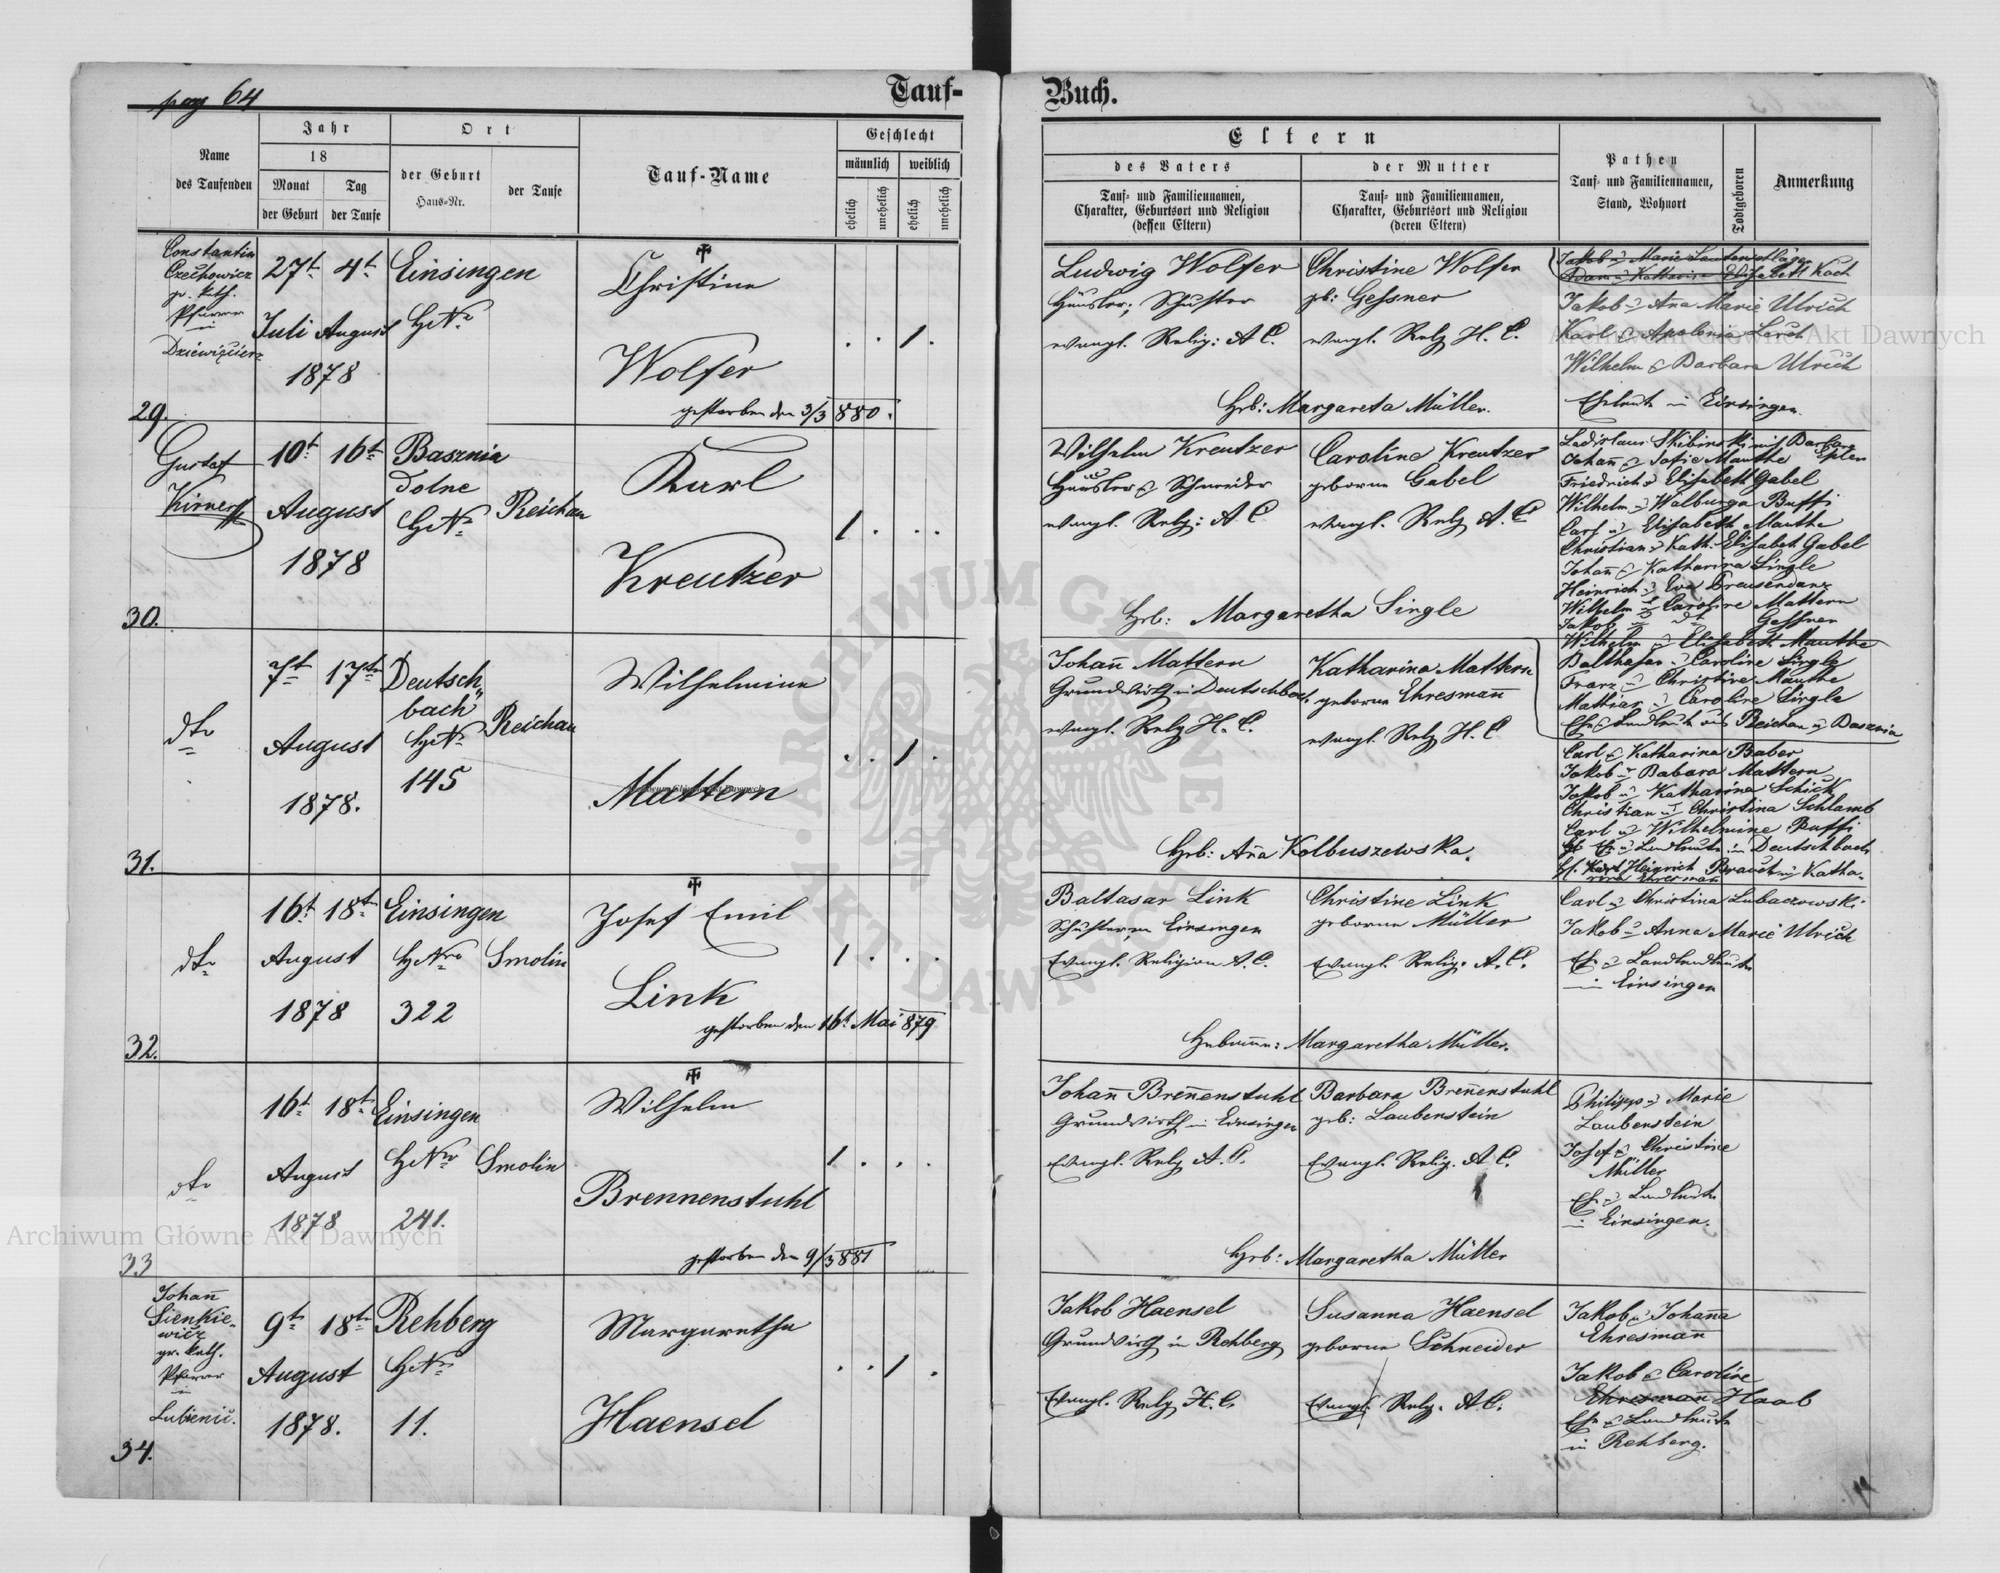 pag 64
Tauf-
Buch.
Name
des Taufenden
Jahr
18
Monat
der Geburt
Tag
der Taufe
Ort
der Geburt
Haus-Nr.
der Taufe
Tauf-Name
Geschlecht
männlich
weiblich
ehelich
unehelich
ehelich
unehelich
Eltern
des Vaters
Tauf- und Familiennamen,
Charakter, Geburtsort und Religion
(dessen Eltern)
der Mutter
Tauf- und Familiennamen,
Charakter, Geburtsort und Religion
(deren Eltern)
Pathen
Tauf- und Familiennamen,
Stand, Wohnort
Todtgeboren
Anmerkung
29.
Constantin
Czechowicz
gr. kath.
Pfarrer
in
27t 4t
Juli August
1878
Einsingen
HNo
Christine
Wolfer
gestorben den 3/3 880.
. . 1 .
Ludwig Wolfer
Häusler, Schuster
evangl. Relig: A C.
Christine Wolfer
gb: Gessner
evangl. Relg H. C.
Heb: Margareta Müller.
Jakob u Marie Lautenschläger
Adam u Katharina Elisabeth Koch
Jakob u Aña Marie Ulrich
Wilhelm u Barbara Ulrich
Eheleute in Einsingen.
30.
Gustaf
10t 16t
August
1878
Basznia
dolne
HNo
Reichau
Karl
Kreutzer
1 . . .
Wilhelm Kreutzer
Häusler u Schneider
evangl. Relg: A C
Caroline Kreutzer
geborne Gabel
evangl. Relg A. C
Heb: Margaretha Single
Ladislaus Skibinski mit Barbara
Johañ u Sofie Mauthe
Friedrich u Elisabeth Gabel
Wilhelm u Walburga Buffi
Carl u Elisabeth Mauthe
Christian u Kath. Elisabet Gabel
Johañ u Katharina Single
Heinrich u Eva
Wilhelm u Caroline Mattern
Jakob u dt Gessner
Wilhelm u Elisabeth Mauthe
Balthasar u Caroline Single
Franz u Christine Mauthe
Mathias u Caroline Single
Ehe u Landleute aus Reichau u Basznia
31.
dto
7t 17t
August
1878.
Deutsch
bach
HNo
145
Reichau
Wilhelmine
Mattern
. . 1 .
Johañ Mattern
Grundwirth in Deutschbach
evangl. Relg H. C.
Katharina Mattern
geborne Ehresmañ
evangl. Relg H. C
Heb: Aña Kolbuszewska.
Carl u Katharina Baber
Jakob u Babara Mattern
Jakob u Katharina Schick
Christian u Christina Schlamb
Carl u Wilhelmine Buffi
Ehe u Landleute in Deutschbach
32.
dto
16t 18t
August
1878
Einsingen
HNro
322
Smolin
Josef Emil
Link
gestorben den 16t Mai 879
1 . . .
Baltasar Link
Schuster in Einsingen
Evangl. Religion A. C.
Christine Link
geborne Müller
Evangl. Relig. A. C.
Hebamme: Margaretha Müller.
Carl u Christina Lubaczowski
Jakob u Anna Marie Ulrich
in Einsingen
33
dto
16t 18t
August
1878
Einsingen
HNro
241.
Smolin
Wilhelm
Brennenstuhl
gestorben den 9/3 881
1 . . .
Johañ Breñenstuhl
Grundwirth in Einsingen
Evangl. Relg A. C.
Barbara Breñenstuhl
geb: Laubenstein
Evangl. Relig. A C.
Heb: Margaretha Müller
Philipp u Marie
Laubenstein
Josef u Christine
Müller
Ehe u Landleute
in Einsingen.
34.
Johañ
Sienkie-
wicz
gr. kath.
Pfarrer
in
9t 18t
August
1878.
Rehberg
HNo
11.
Margaretha
Haensel
. . 1 .
Jakob Haensel
Grundwirth in Rehberg
Evangl. Relg H. C.
Susanna Haensel
geborne Schneider
Evangl. Relg. A C.
Jakob u Johaña
Ehresmañ
Jakob u Caroline
Ehresmañ Haab
Ehe u Landleute
in Rehberg.
Archiwum Główne Akt Dawnych
Archiwum Główne Akt Dawnych